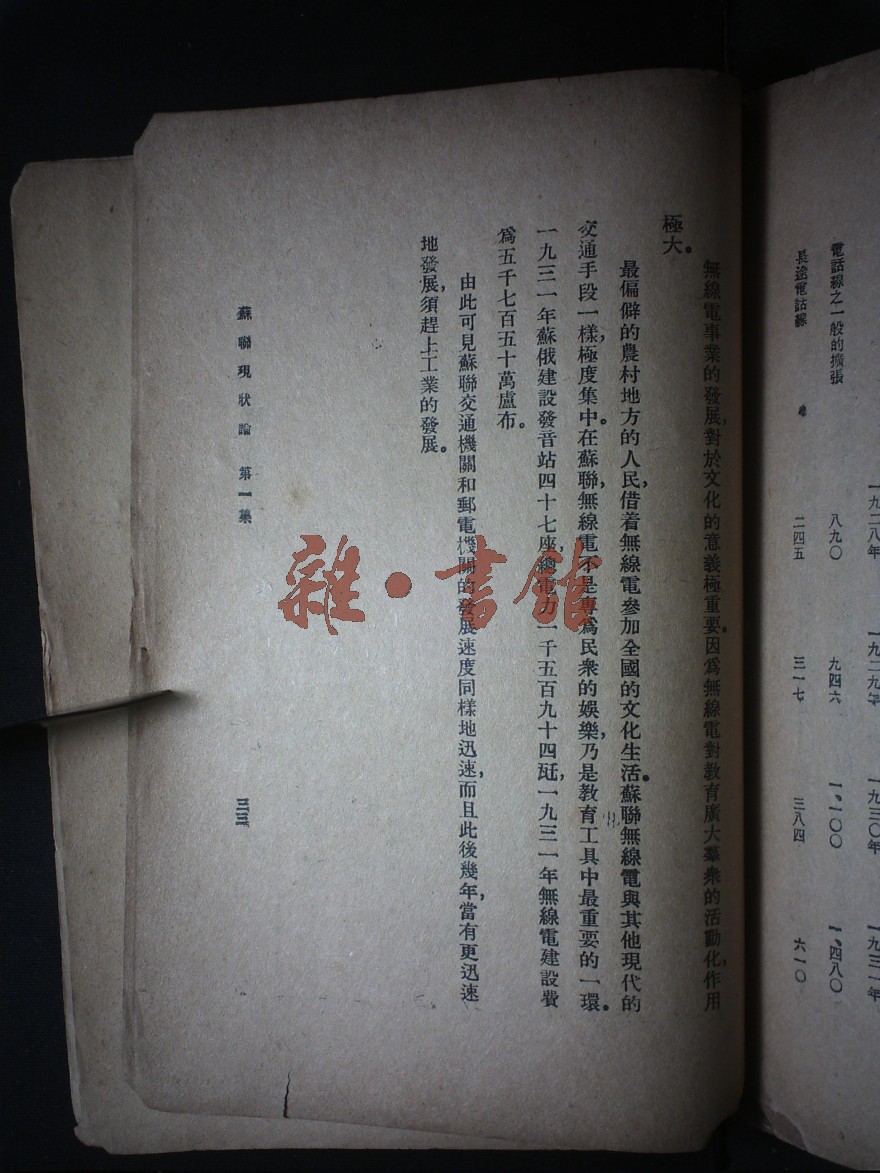 一九二八年 一九二九年 一九三〇年 一九三一年
電話線之一般的擴張 八九〇 九四六 一、一〇〇 一、四八〇
長途電話線 二四五 三一七 三八四 六一〇
無線電事業的發展,對於文化的意義極重要。因爲無線電對教育廣大羣衆的活動化作用,
極大。
最偏僻的農村地方的人民,借着無線電參加全國的文化生活。蘇聯無線電與其他現代的
交通手段一樣,極度集中。在蘇聯,無線電不是專爲民衆的娛樂,乃是教育工具中最重要的一環。
一九三一年蘇俄建設發音站四十七座,總電力一千五百九十四瓩,一九三一年無線電建設費
爲五千七百五十萬盧布。
由此可見蘇聯交通機關和郵電機關的發展速度同樣地迅速,而且此後幾年,當有更迅速
地發展,須趕上工業的發展。
蘇聯現狀論 第一集 三三
雜·書館